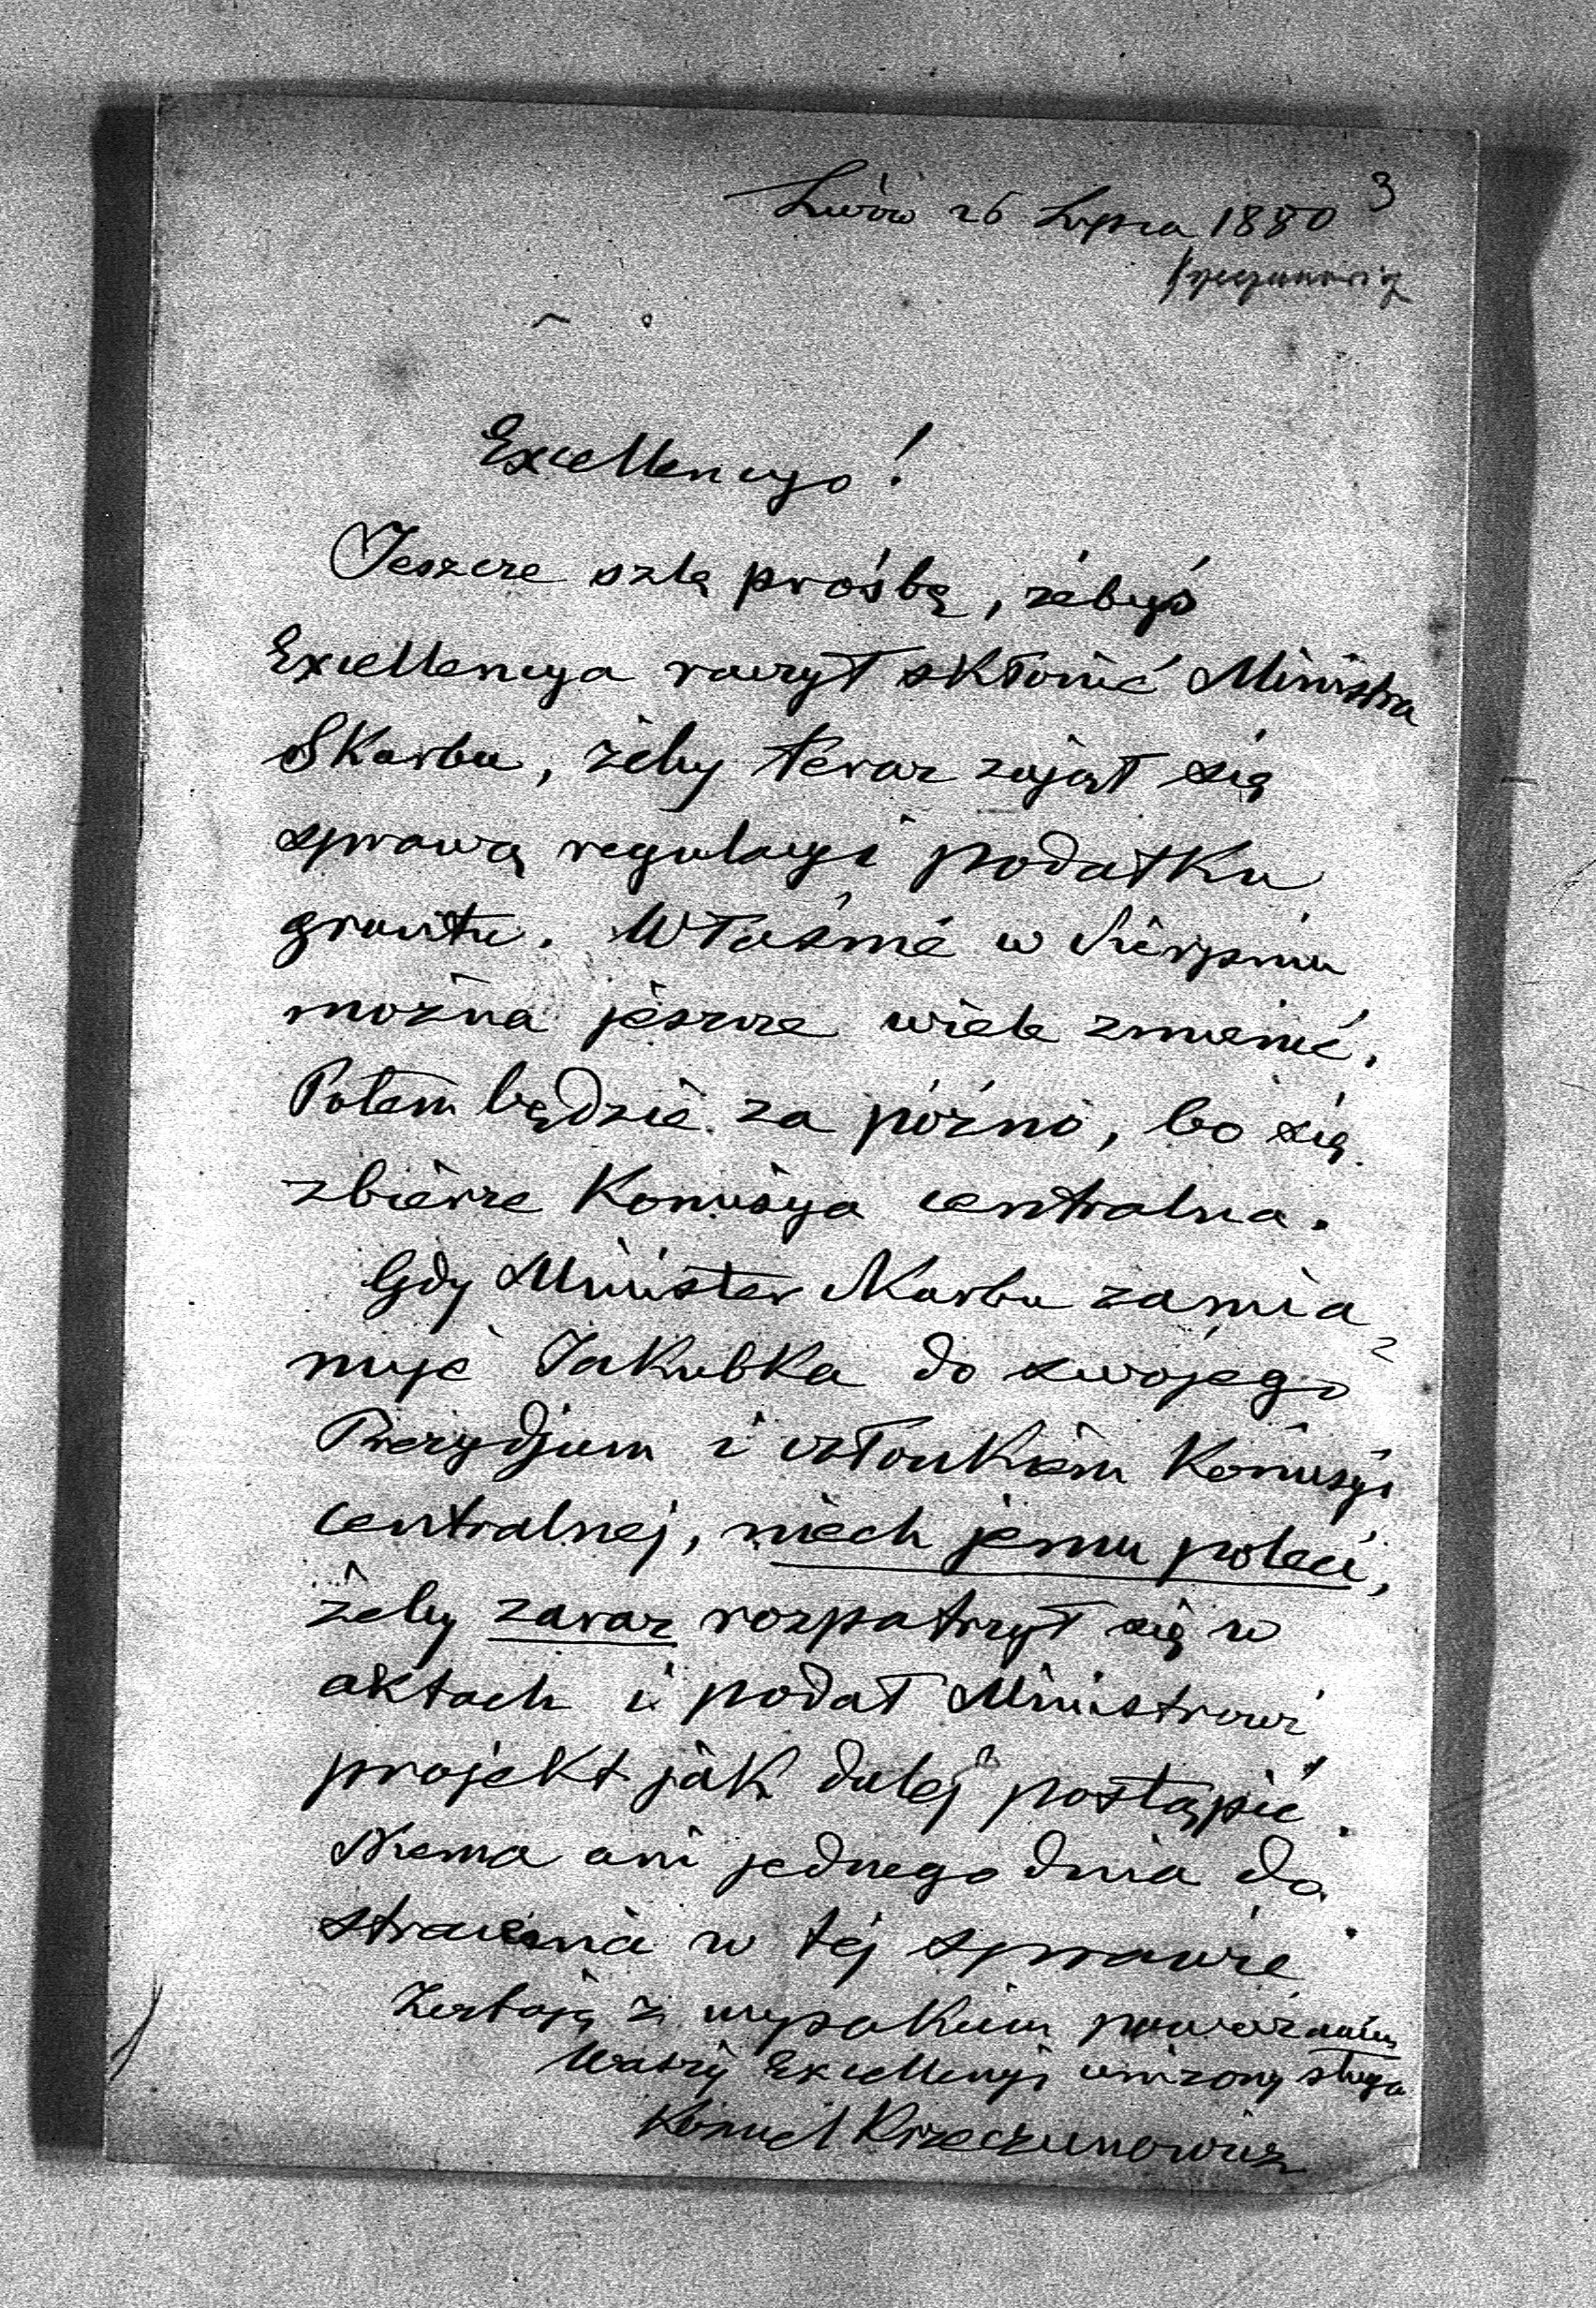 Lwów 26 Lipca 1880
3
Krzeczunowicz
Excellencyo!
Jeszcze szlę prośbę, żebyś
Excellencya raczył skłonić Ministra
Skarbu, żeby teraz zajął się
sprawą regulacyi podatku
gruntu. Właśnie w Sierpniu
można jeszcze wiele zmienić.
Potem będzie za późno, bo się
zbierze Komisya centralna.
Gdy Minister Skarbu zamia-
nuje Jakubka do swojego
Prezydjum i członkiem Komisyi
centralnej, niech jemu poleci,
żeby zaraz rozpatrzył się w
aktach i podał Ministrowi
projekt jak dalej postąpić.
Niema ani jednego dnia do
stracenia w tej sprawie.
Zostaję z wysokiem poważaniem
Waszej Excellencyi uniżony sługa
Kornel Krzeczunowicz